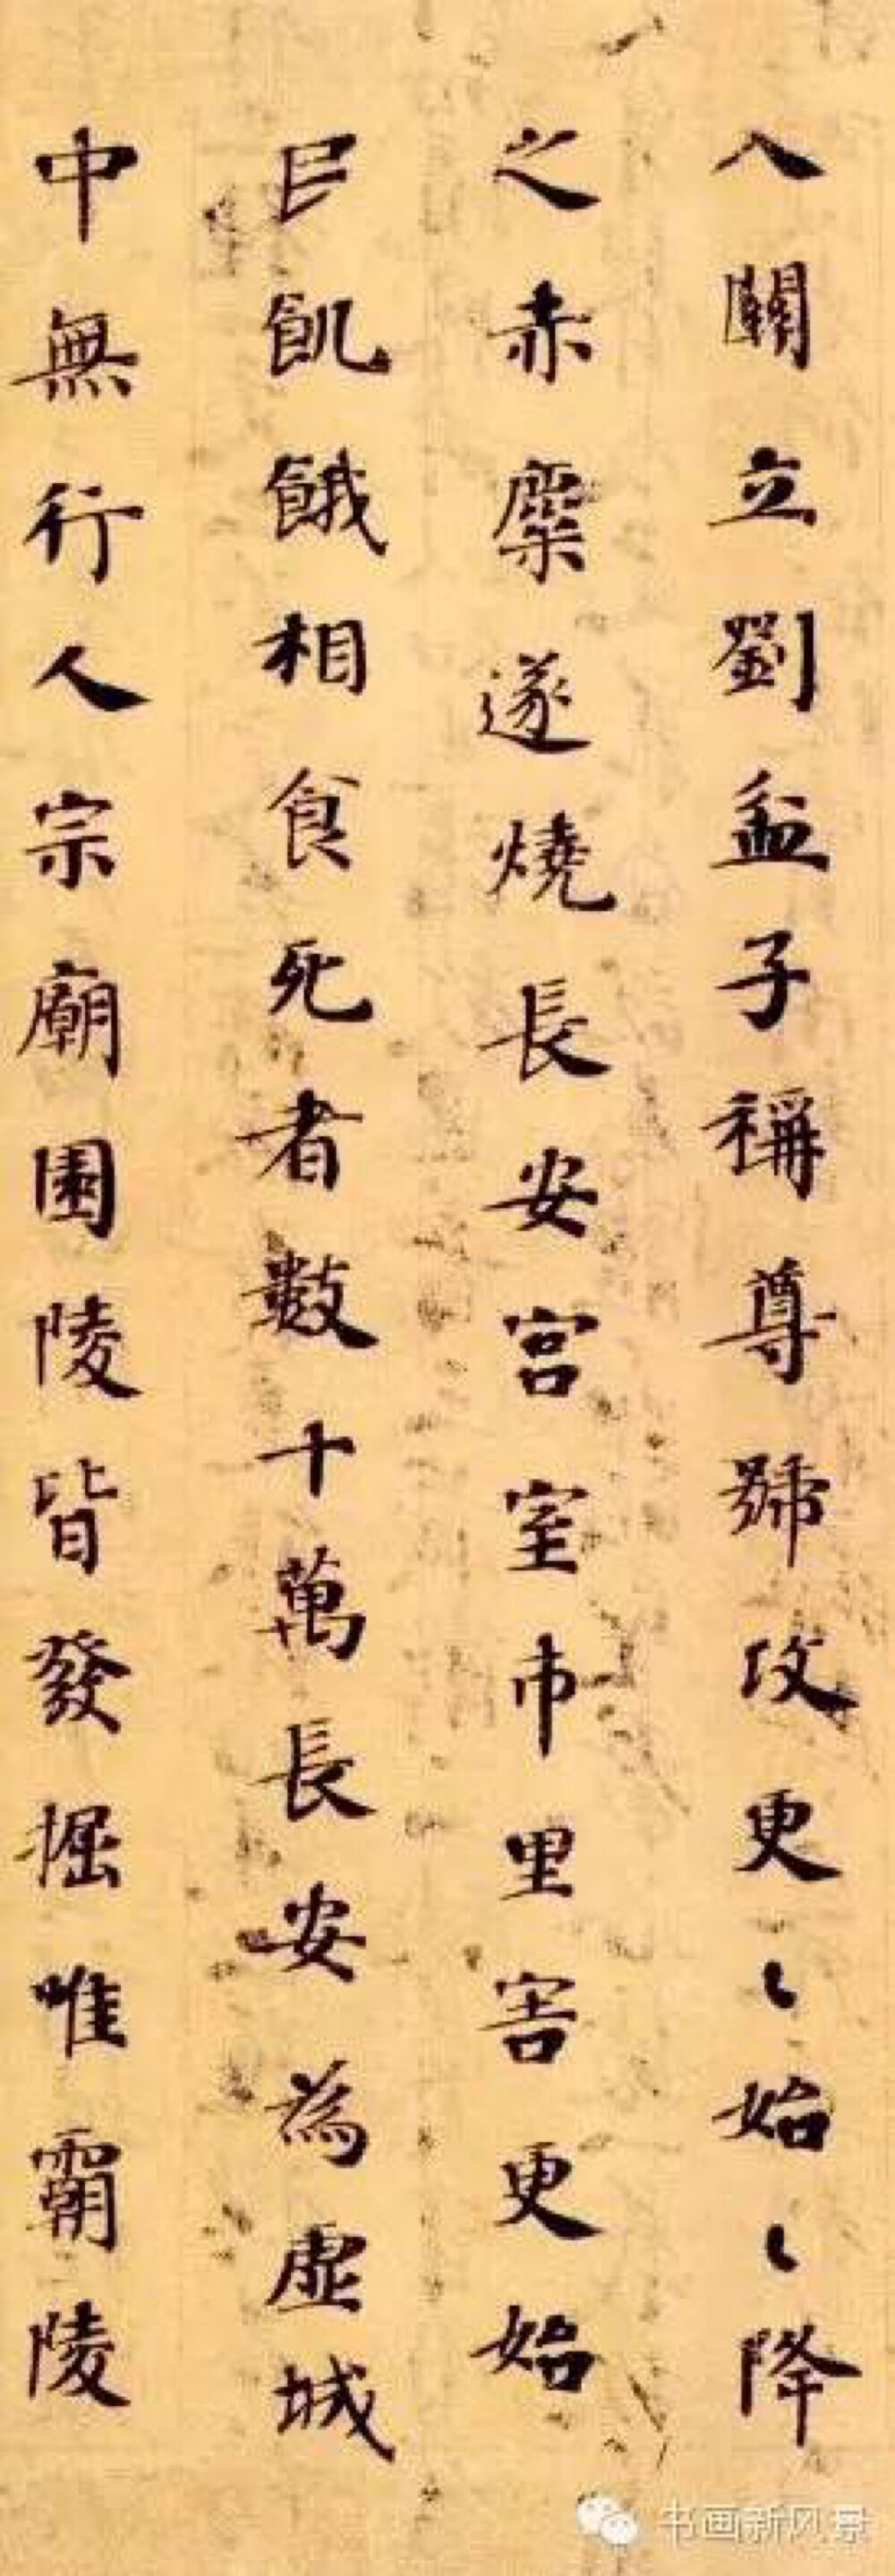 入關立劉盆子稱尊號攻更〻始〻降
之赤糜遂燒長安宮室市里害更始
民飢餓相食死者數十萬長安為虛城
中無行人宗廟園陵皆發掘唯霸陵
书画新风景